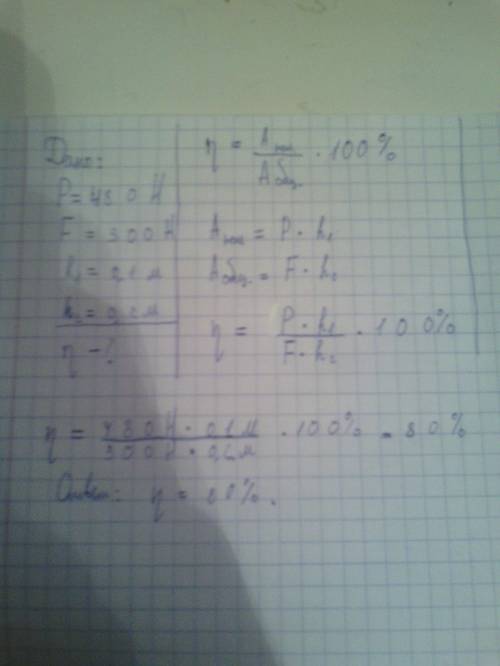 Дано:
P = 480 Н
F = 300 Н
h₁ = 0,1 м
h₂ = 0,2 м
η - ?
η = Aпол / Aобщ. · 100%
Aпол = P · h₁
Aобщ. = F · h₂
η = P · h₁ / F · h₂ · 100%
η = 480Н · 0,1м / 300Н · 0,2м · 100% = 80%
Ответ: η = 80%.